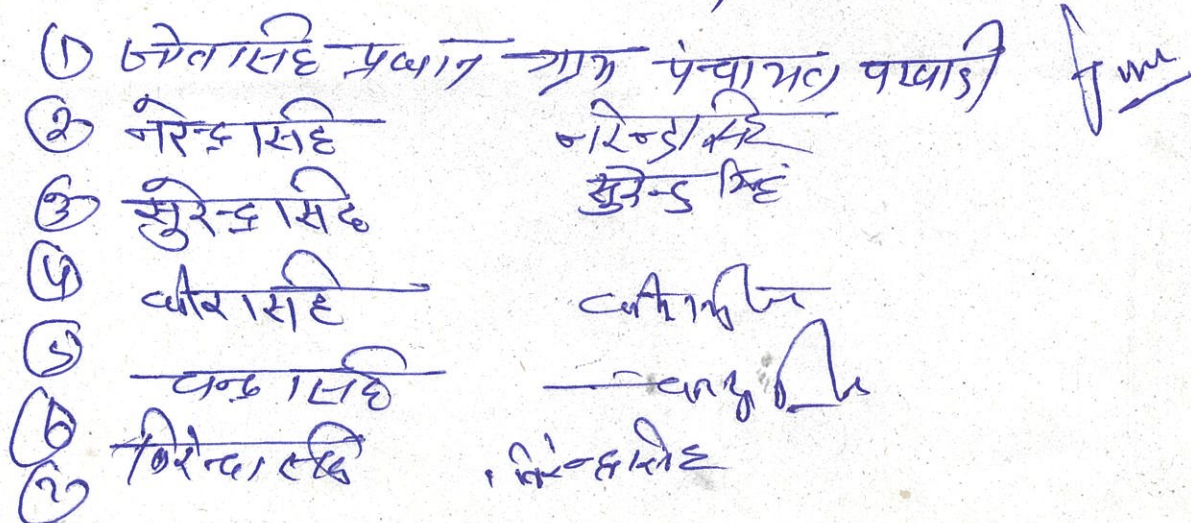 ① जोतसिंह प्रधान ग्राम पंचायत पखाडी
② नरेन्द्र सिंह नरेन्द्र सिंह
③ सुरेन्द्र सिंह सुरेन्द्र सिंह
④ धीरा सिंह
⑤ चन्द्र सिंह
⑥ विरेन्द्र सिंह विरेन्द्र सिंह
⑦